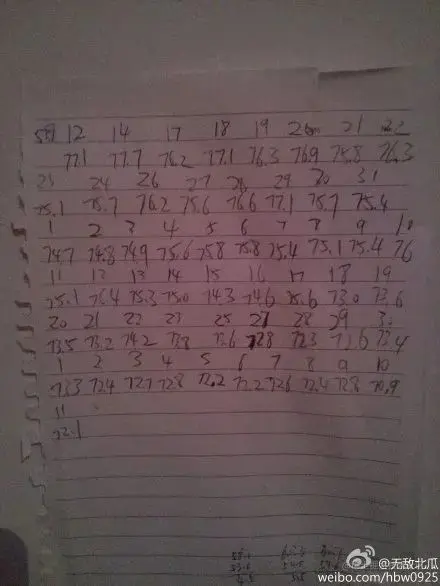 12 14 17 18 19 20 21 22
77.1 77.7 76.2 77.1 76.3 76.9 75.8 76.3
23 24 26 27 28 29 30 31
75.1 75.7 76.2 75.6 76.6 77.1 75.7 75.4
1 2 3 4 5 6 7 8 9 10
74.7 74.8 74.9 75.6 75.8 75.8 75.4 75.1 75.4 76
11 12 13 14 15 16 17 18 19
75.1 76.4 75.3 75.0 74.3 74.6 75.6 73.0 73.6
20 21 22 23 25 27 28 29 30
73.5 73.2 74.2 73.8 73.6 72.8 72.3 73.6 73.4
1 2 3 4 5 6 7 8 9 10
73.3 72.4 72.7 72.8 72.2 72.2 72.6 72.4 72.8 70.9
11
72.1
@无敌北瓜
weibo.com/hbw0925